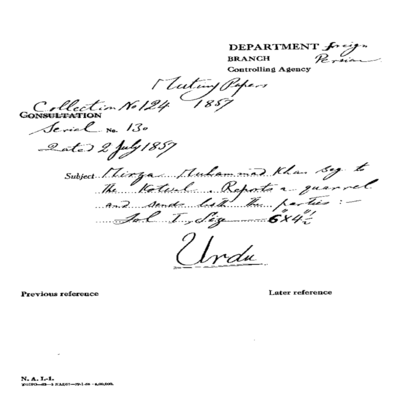 DEPARTMENT Foreign
BRANCH Persian
Controlling Agency
Mutiny Papers
Collection No 124 1857
CONSULTATION
Serial No. 130
Dated 2 July 1857
Subject Mirza Muhammad Khan Beg to
the Kotwal. Reports a quarrel
and sends both the parties :-
Fol I, Size 6"x4½"
Urdu
Previous reference
Later reference
N. A. I.-1.